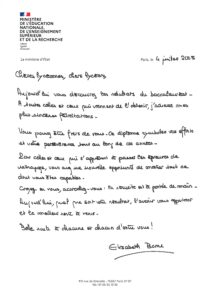 MINISTÈRE
DE L'ÉDUCATION
NATIONALE,
DE L'ENSEIGNEMENT
SUPÉRIEUR
ET DE LA RECHERCHE
Liberté
Égalité
Fraternité
La ministre d'État
Paris, le 4 juillet 2025
Chères bachelières, chers bacheliers,
Aujourd'hui vous découvrez les résultats du baccalauréat.
À toutes celles et ceux qui viennent de l'obtenir, j'adresse mes
plus sincères félicitations.
Vous pouvez être fiers de vous. Ce diplôme symbolise vos efforts
et votre persévérance tout au long de ces années.
Pour celles et ceux qui s'apprêtent à passer les épreuves de
rattrapage, vous avez une nouvelle opportunité de montrer tout ce
dont vous êtes capables.
Croyez en vous, accrochez-vous : la réussite est à portée de main.
Aujourd'hui, quel que soit votre résultat, l'avenir vous appartient
et le meilleur reste à venir.
Belle route à chacune et chacun d'entre vous !
Elisabeth Borne
110 rue de Grenelle - 75357 Paris SP 07